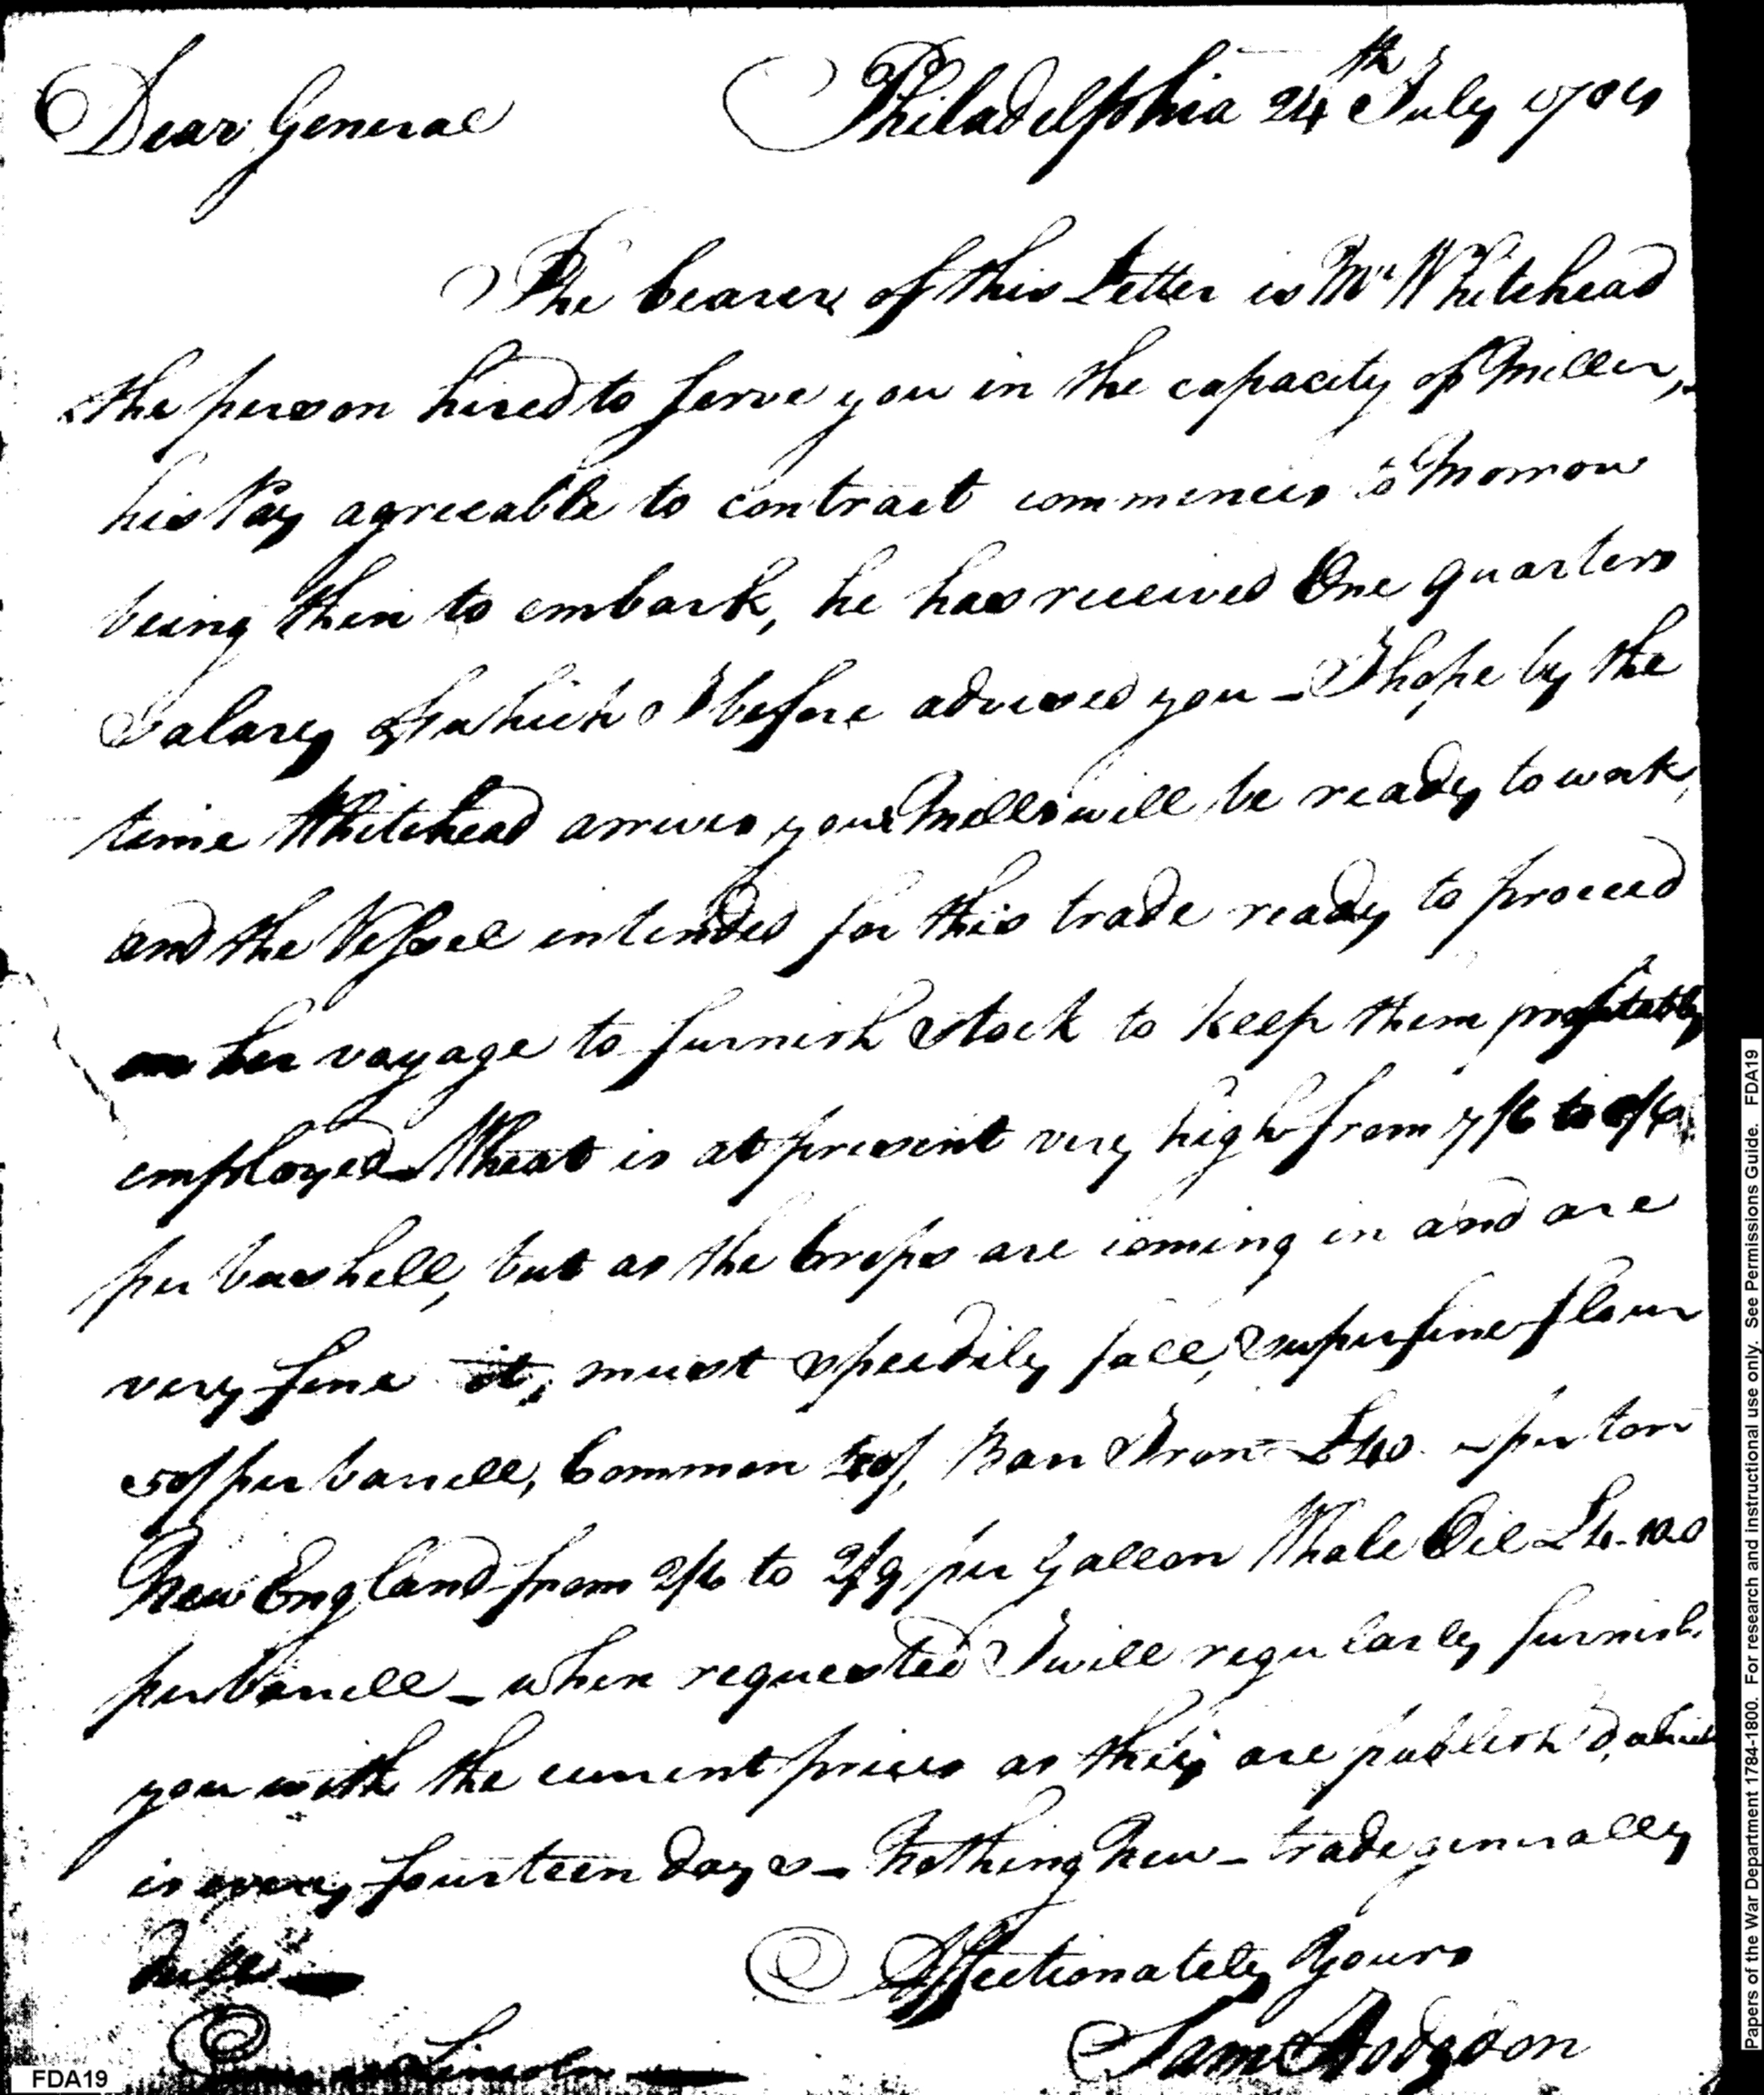 Dear General
Philadelphia 24th July 1784
The bearer of this Letter is Mr Whitehead
the person hired to serve you in the capacity of Miller,
his Pay agreeable to contract commences to Morrow
being then to embark, he has received One quarters
Salary of which I before advised you – I hope by the
time Whitehead arrives your Mills will be ready to work,
and the Vessel intended for this trade ready to proceed
on her voyage to furnish stock to keep them profitably
employed – Wheat is at present very high from 7/6 to
per bushell, but as the Crops are coming in and are
very fine it, must speedily fall, Superfine flour
50/ per barrell, Common Barr Iron £40 – per ton
New England from 2/6 to 2/9 per Gallon Whale Oil
per barrell – when requested I will regularly furnish
you with the current prices as they are publish'd, which
is every fourteen days – Nothing New – trade generally
dull –
Affectionately Yours
Sam Hodgdon
Lincoln –
FDA19
Papers of the War Department 1784-1800. For research and instructional use only. See Permissions Guide. FDA19